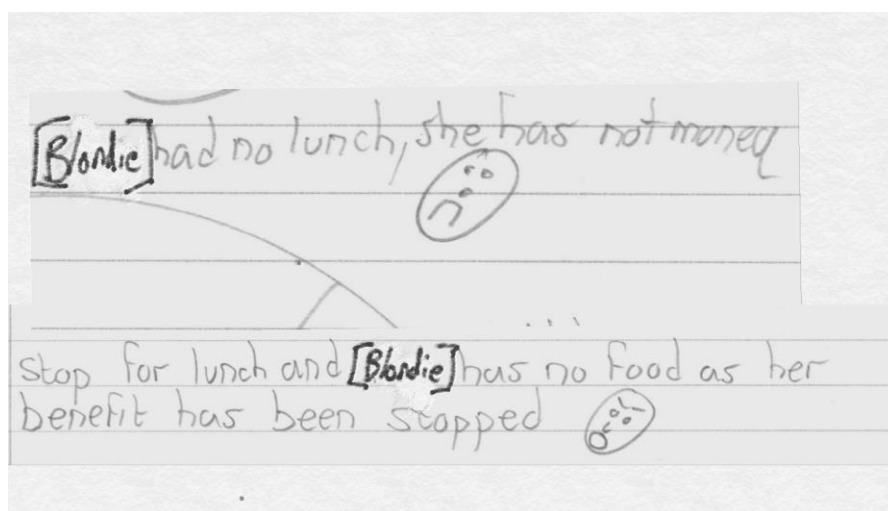 [Blondie] had no lunch, she has not money
Stop for lunch and [Blondie] has no food as her
benefit has been stopped